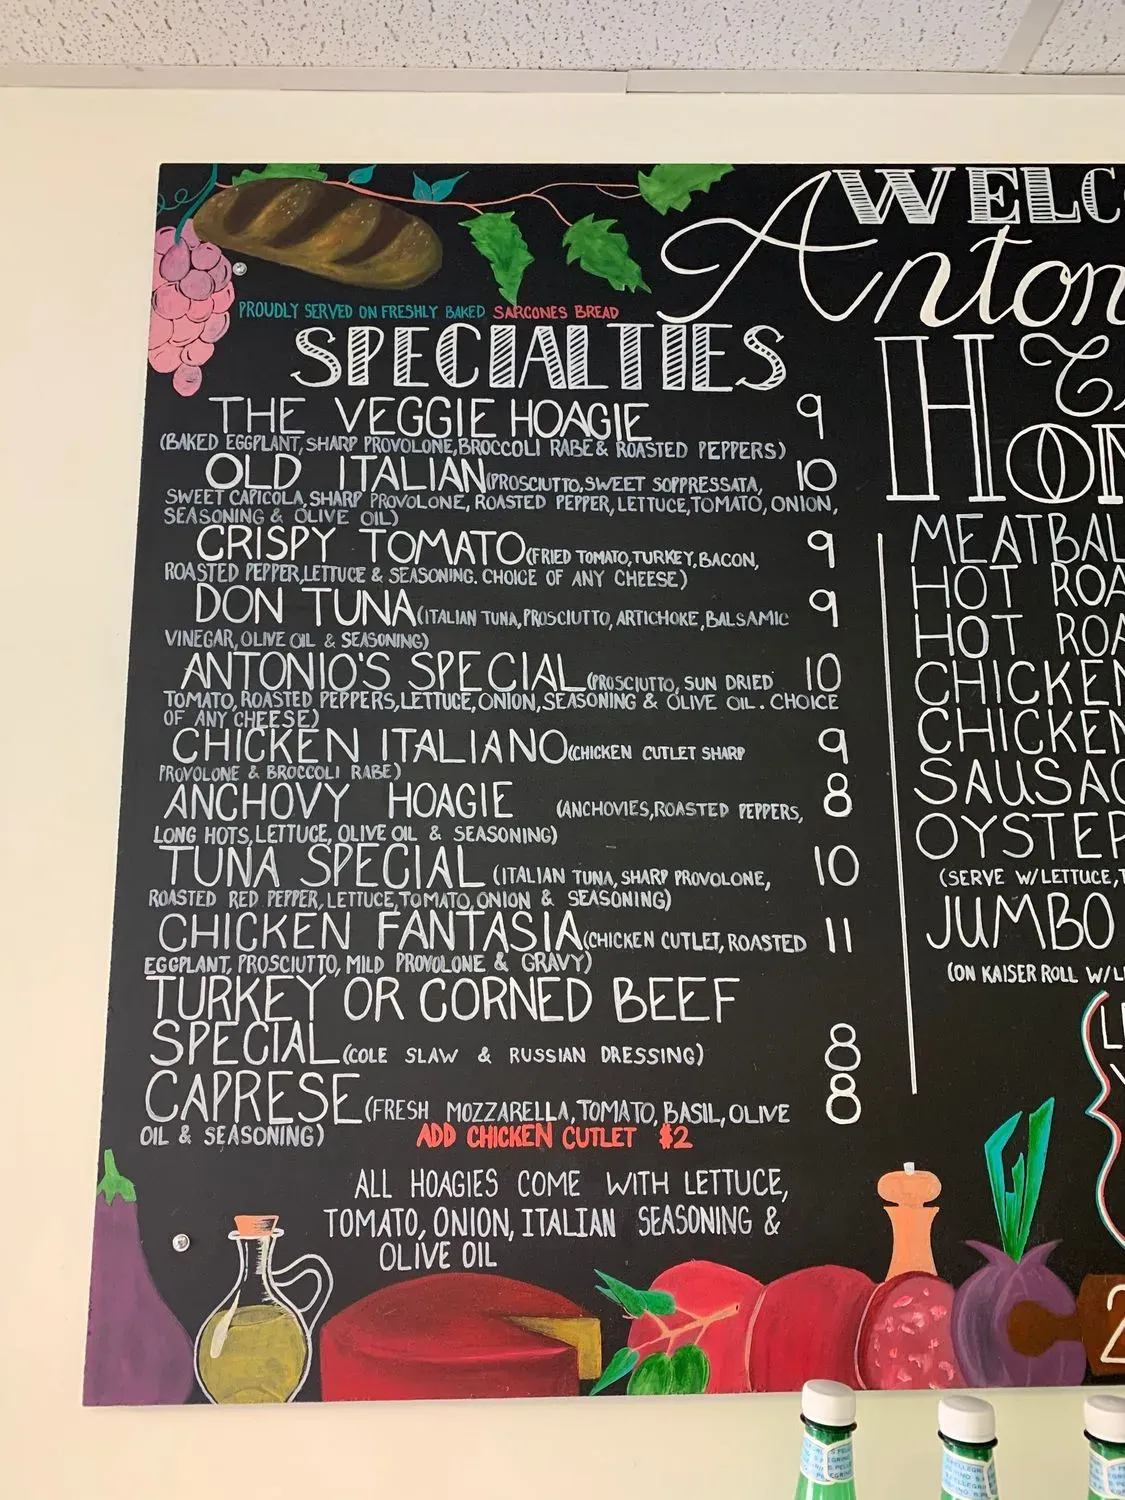 WELC
Anton
PROUDLY SERVED ON FRESHLY BAKED SARCONES BREAD
SPECIALTIES
THE VEGGIE HOAGIE 9
(BAKED EGGPLANT, SHARP PROVOLONE, BROCCOLI RABE & ROASTED PEPPERS)
OLD ITALIAN (PROSCIUTTO, SWEET SOPPRESSATA, 10
SWEET CAPICOLA, SHARP PROVOLONE, ROASTED PEPPER, LETTUCE, TOMATO, ONION,
SEASONING & OLIVE OIL)
CRISPY TOMATO (FRIED TOMATO, TURKEY, BACON, 9
ROASTED PEPPER, LETTUCE & SEASONING. CHOICE OF ANY CHEESE)
DON TUNA (ITALIAN TUNA, PROSCIUTTO, ARTICHOKE, BALSAMIC 9
VINEGAR, OLIVE OIL & SEASONING)
ANTONIO'S SPECIAL (PROSCIUTTO, SUN DRIED 10
TOMATO, ROASTED PEPPERS, LETTUCE, ONION, SEASONING & OLIVE OIL. CHOICE
OF ANY CHEESE)
CHICKEN ITALIANO (CHICKEN CUTLET SHARP 9
PROVOLONE & BROCCOLI RABE)
ANCHOVY HOAGIE (ANCHOVIES, ROASTED PEPPERS, 8
LONG HOTS, LETTUCE, OLIVE OIL & SEASONING)
TUNA SPECIAL (ITALIAN TUNA, SHARP PROVOLONE, 10
ROASTED RED PEPPER, LETTUCE, TOMATO, ONION & SEASONING)
CHICKEN FANTASIA (CHICKEN CUTLET, ROASTED 11
EGGPLANT, PROSCIUTTO, MILD PROVOLONE & GRAVY)
TURKEY OR CORNED BEEF
SPECIAL (COLE SLAW & RUSSIAN DRESSING) 8
CAPRESE (FRESH MOZZARELLA, TOMATO, BASIL, OLIVE 8
OIL & SEASONING) ADD CHICKEN CUTLET $2
ALL HOAGIES COME WITH LETTUCE,
TOMATO, ONION, ITALIAN SEASONING &
OLIVE OIL
HO
MEATBAL
HOT ROA
HOT ROA
CHICKEN
CHICKEN
SAUSAG
OYSTER
(SERVE W/LETTUCE, T
JUMBO
(ON KAISER ROLL W/L
2
S.PELLEGRI